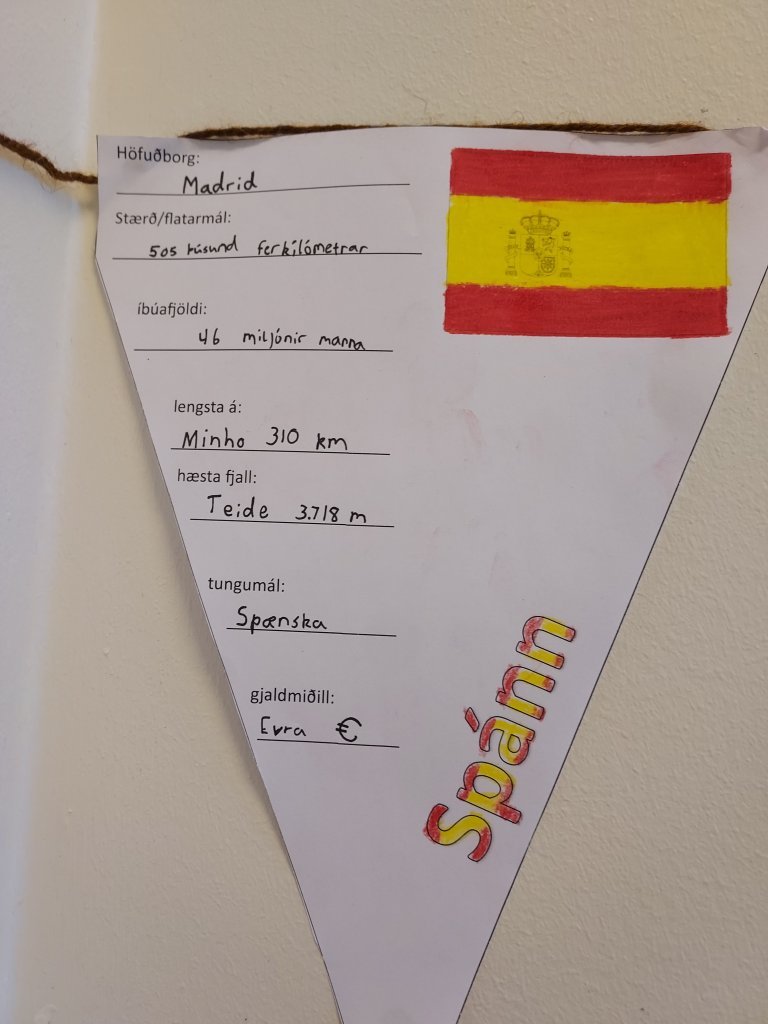 Höfuðborg:
Madrid
Stærð/flatarmál:
505 þúsund ferkílómetrar
íbúafjöldi:
46 miljónir manna
lengsta á:
Minho 310 km
hæsta fjall:
Teide 3.718 m
tungumál:
Spænska
gjaldmiðill:
Evra €
Spánn